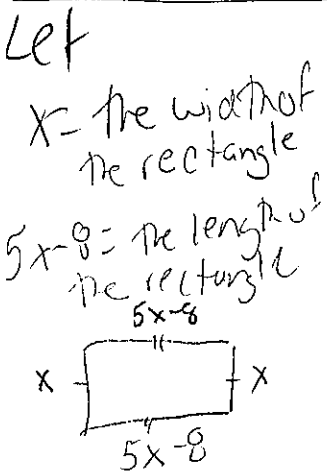 Let
x = the width of
the rectangle
5x-8 = the length of
the rectangle
5x-8
x x
5x-8